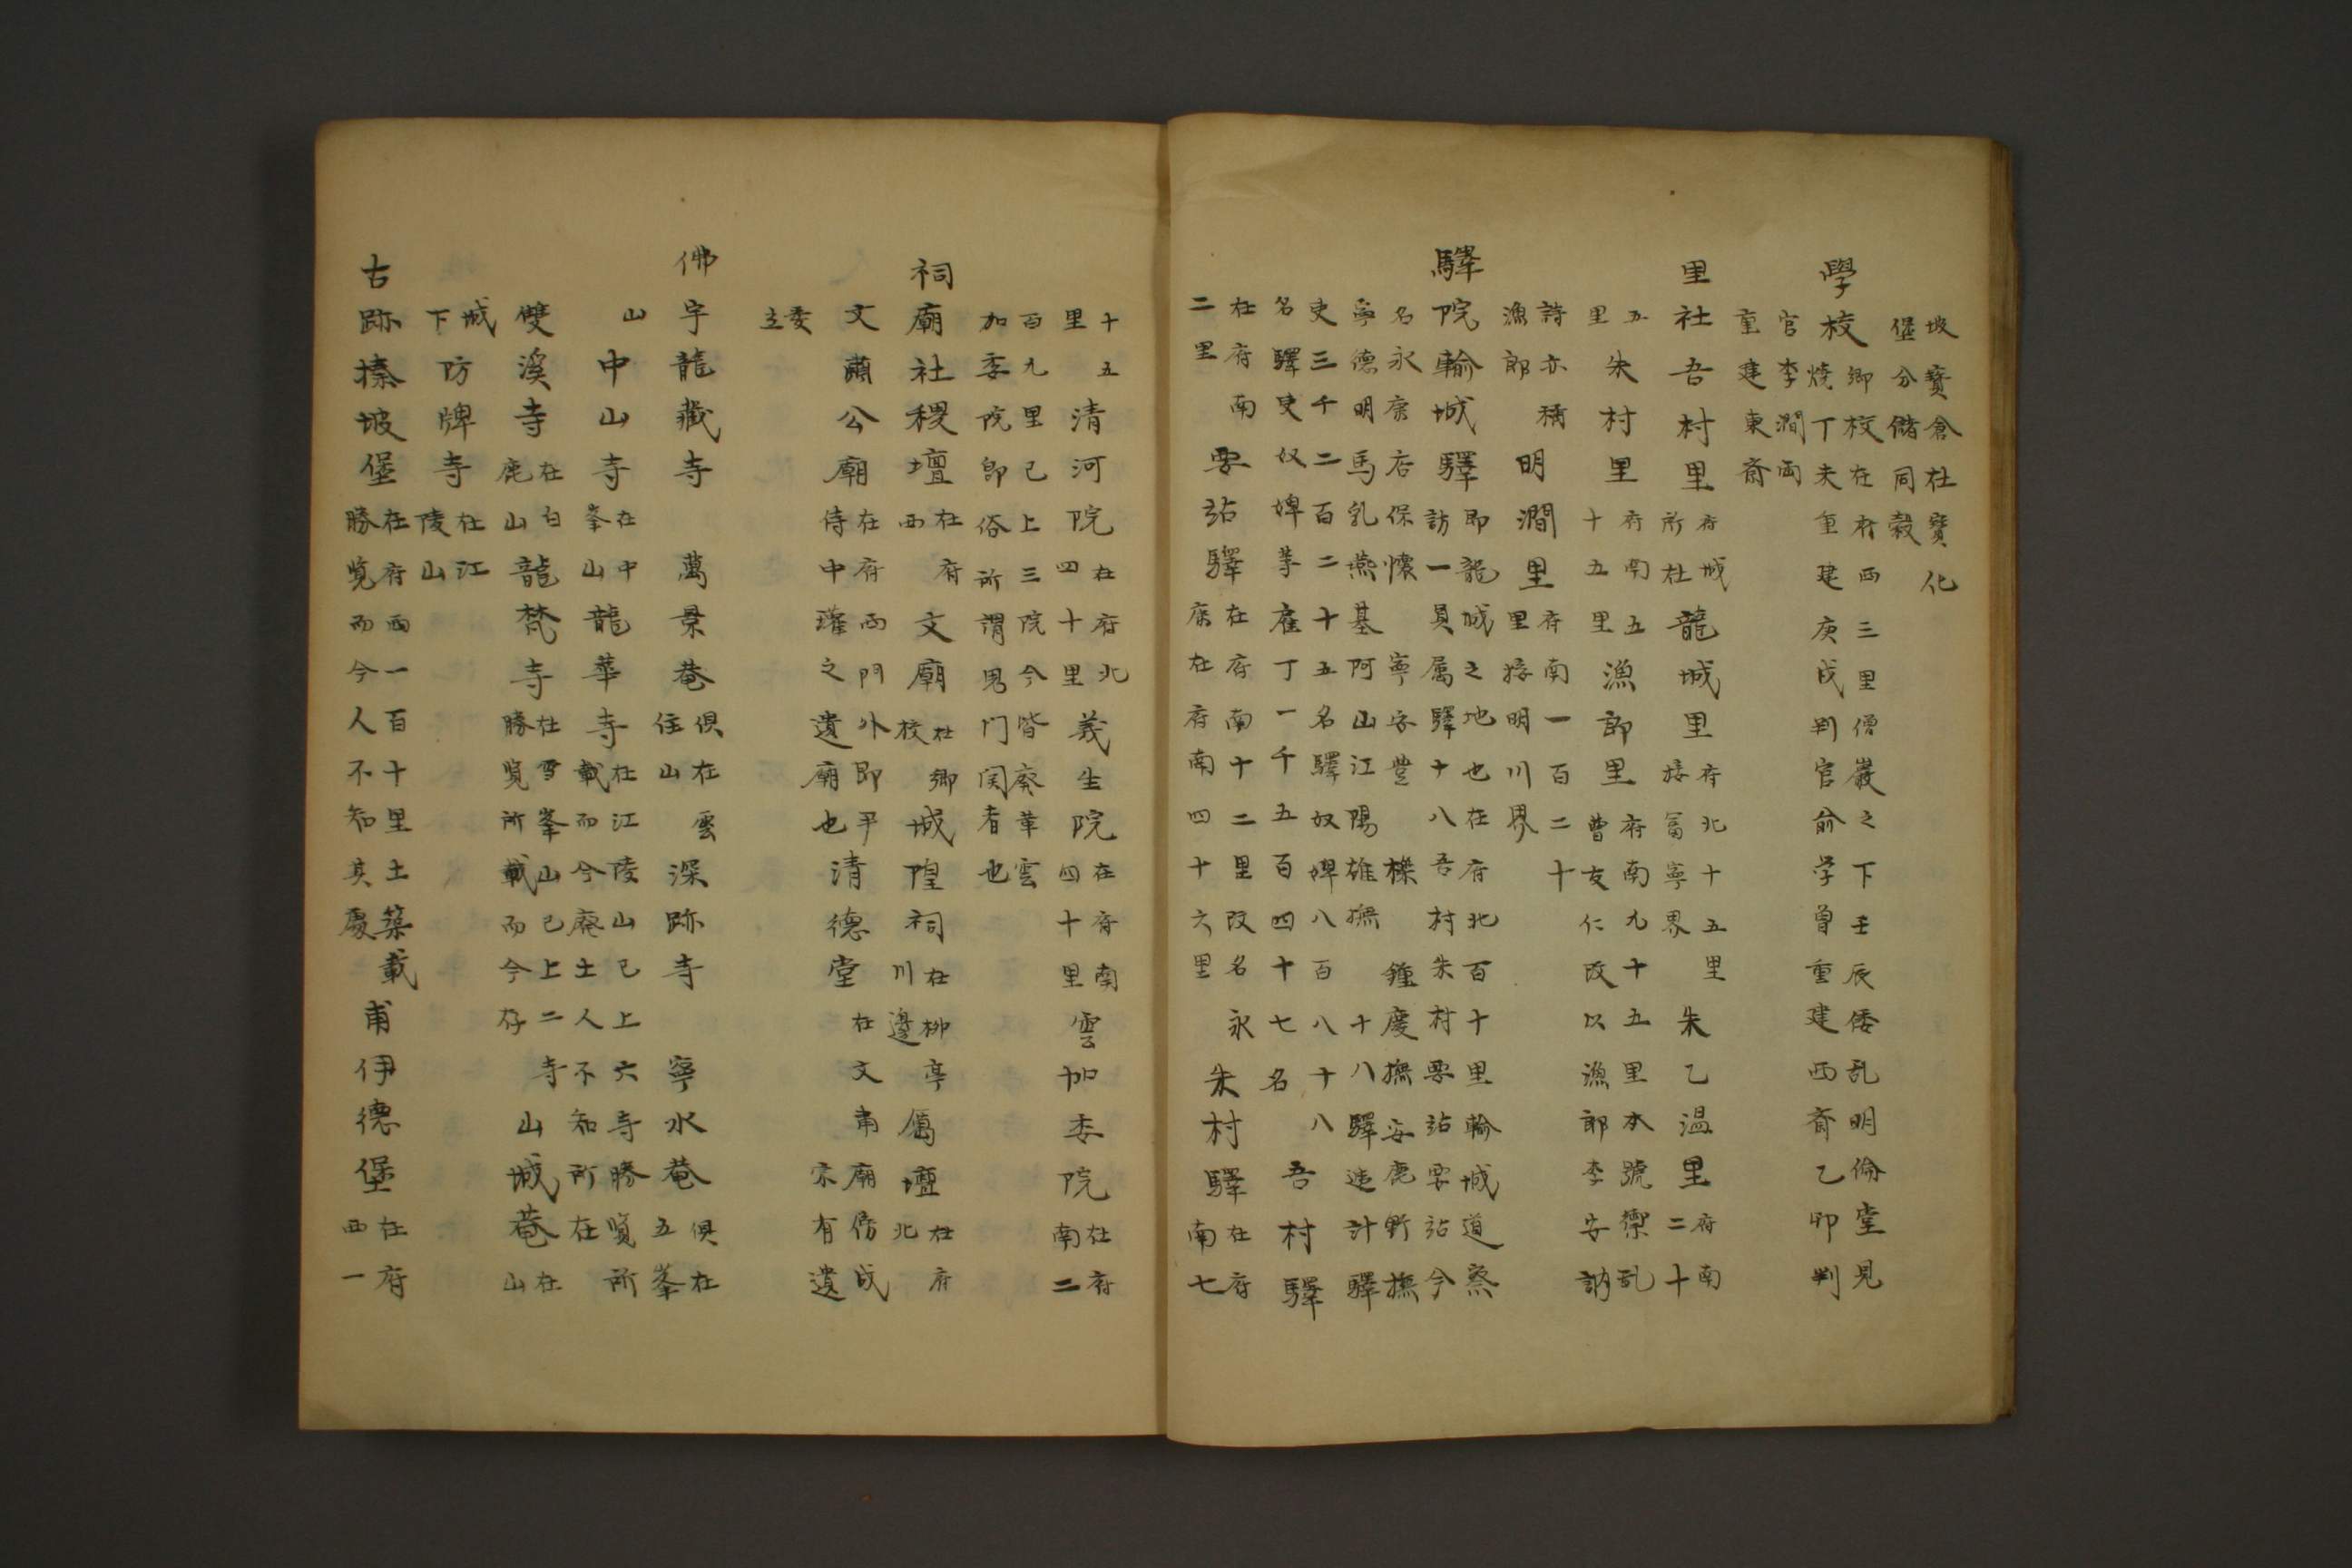 坡寳倉杜寳化
堡分儲同糓
學校鄉校在府西三里僧巖之下壬辰倭乱明倫堂見
燒丁未重建庚戌判官俞学曾重建西斎乙卯判
官李澗両
重建東斎
里社吾村里府城所在龍城里府北十五里接富寧界朱乙温里府南二十
五里朱村里府南五十五里漁郎里府南九十五里本號禦乱
曹友仁改以漁郎李安訥
詩亦稱
漁郎明澗里府南一百二十里接明川界
驛院輸城驛即龍城之地也在府北百十里輸城道察
訪一員属驛十八吾村朱村要站要站今
名永康店保懐寧安豊櫟鍾慶撫安鹿野撫
寧德明馬乳燕基阿山江陽雄撫十八驛逵計驛
吏三千二百二十五名驛奴婢八百八十八
名驛吏奴婢等雇丁一千五百四十七名吾村驛
在府南
二里要站驛在府南十二里改名永康在府南四十六里朱村驛在府南七
十五
里清河院在府北四十里義生院在府南四十里雲加委院在府南二
百九里已上三院今皆廢革雲
加委院即俗所謂男门関者也
祠廟社稷壇在府西文廟在鄉校城隍祠在柳亭川邊厲壇在府北
文蕭公廟在府西門外即尹侍中瓘之遺廟也清德堂在文肅廟傍成宗有遺
委
立
佛宇龍藏寺萬景菴俱在雲住山深跡寺寧水菴俱在五峯
山中山寺在中峯山龍華寺在江陵山已上六寺勝覧所
載而今廢土人不知所在
雙溪寺在白鹿山龍梵寺在雪峯山已上二寺
勝覧所載而今存山城菴在山
城
下防牌寺在江陵山
古跡搸坡堡在府西一百十里土築載
勝覧而今人不知其處甫伊德堡在府西一